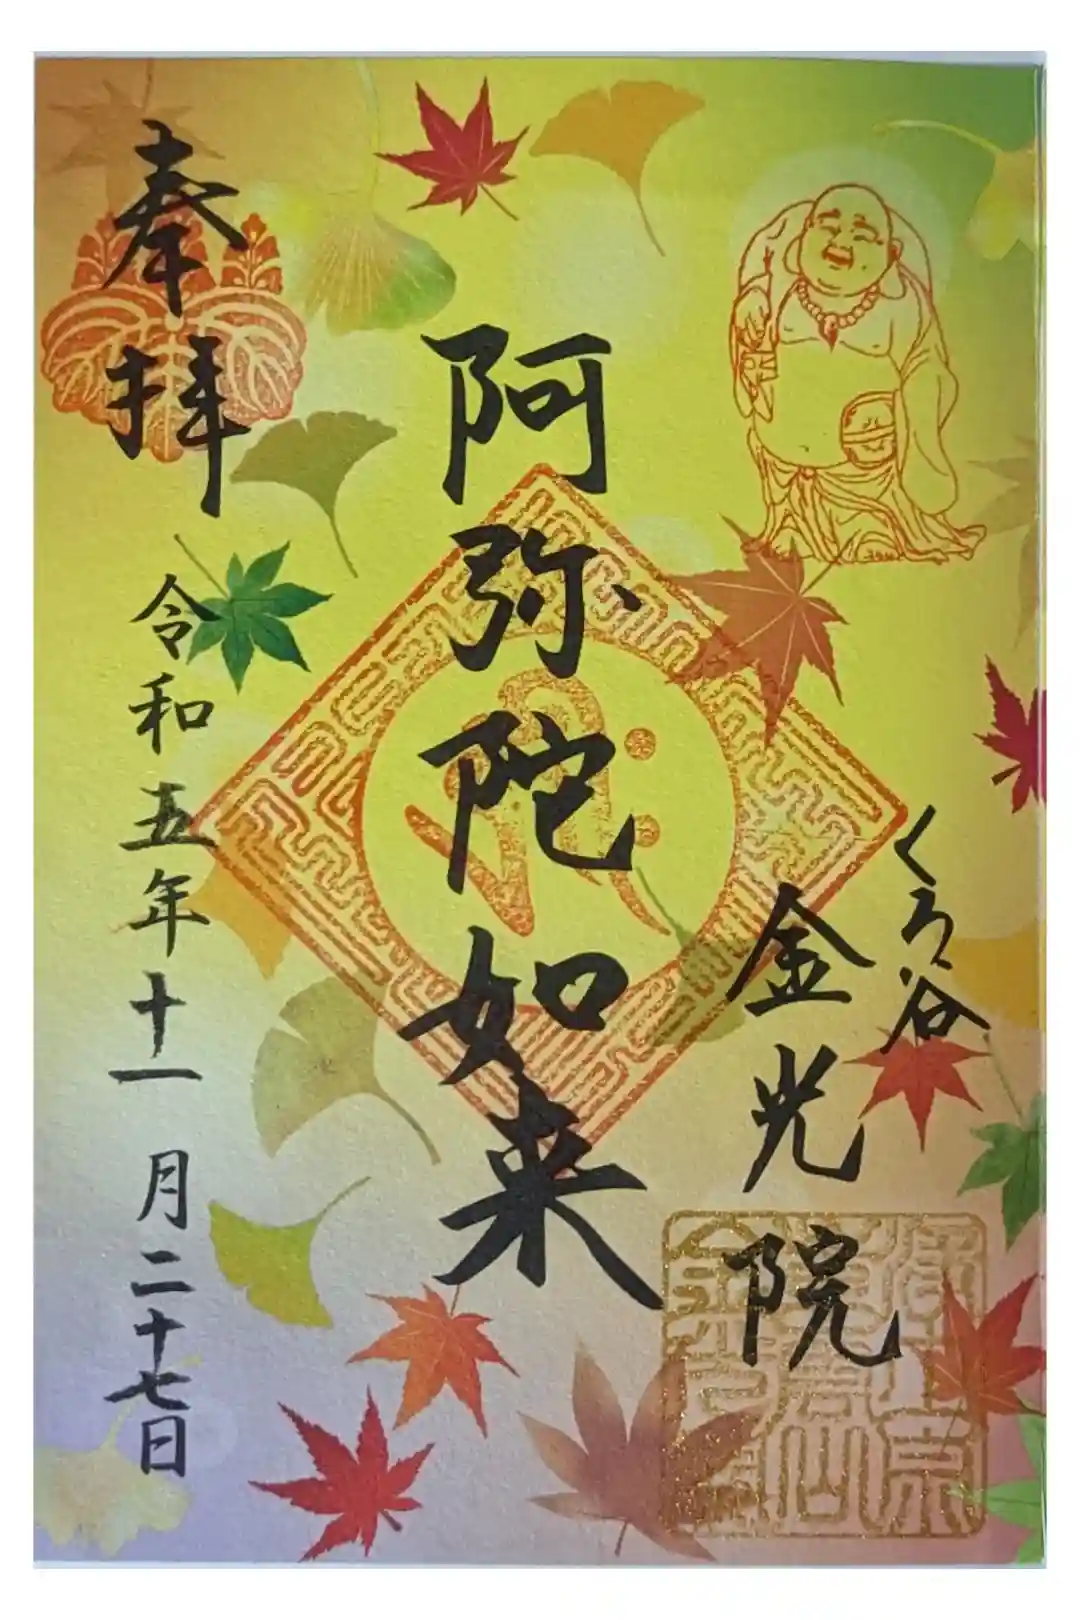 奉拝
令和五年十一月二十七日
阿弥陀如来
くろ谷
金光院